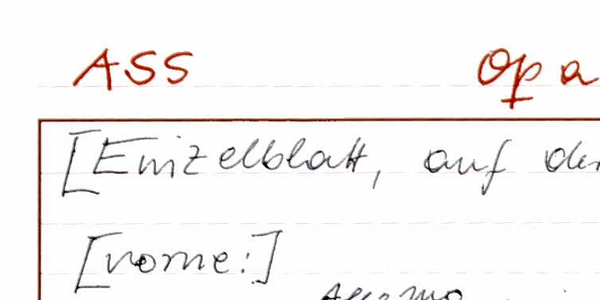 ASS Opa
[Einzelblatt, auf der
[vorne:]